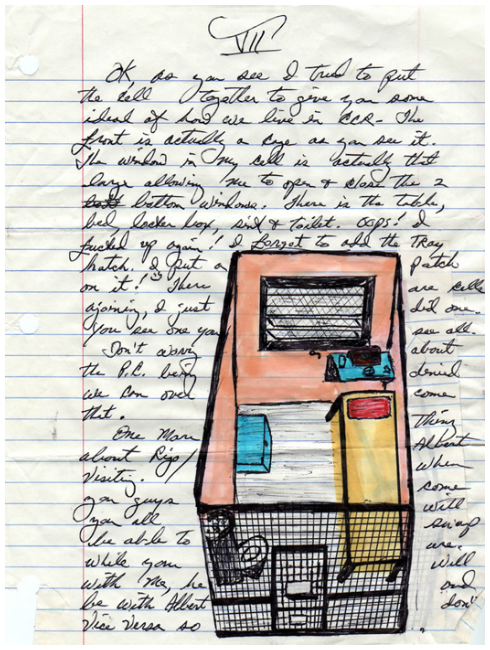 VII
OK, as you see I tried to put
the cell together to give you some
ideal of how we live in CCR - The
front is actually a cage as you see it.
The window in my cell is actually that
large allowing me to open & close the 2
bottom windows. There is the table,
bed, locker box, sink & toilet. OOPS! I
fucked up again! I forget to add the Tray
hatch. I put a patch
on it! There are cells
ajoining, I just did one.
You see one you see all.
Don't worry about
the P.C. being denied
we can over come
that.
One more Thing
about Rigo/ Albert
Visiting. When
you guys come
you all will
be able to swap
while your are.
with me, he will
be with Albert and
Vice Versa so don't